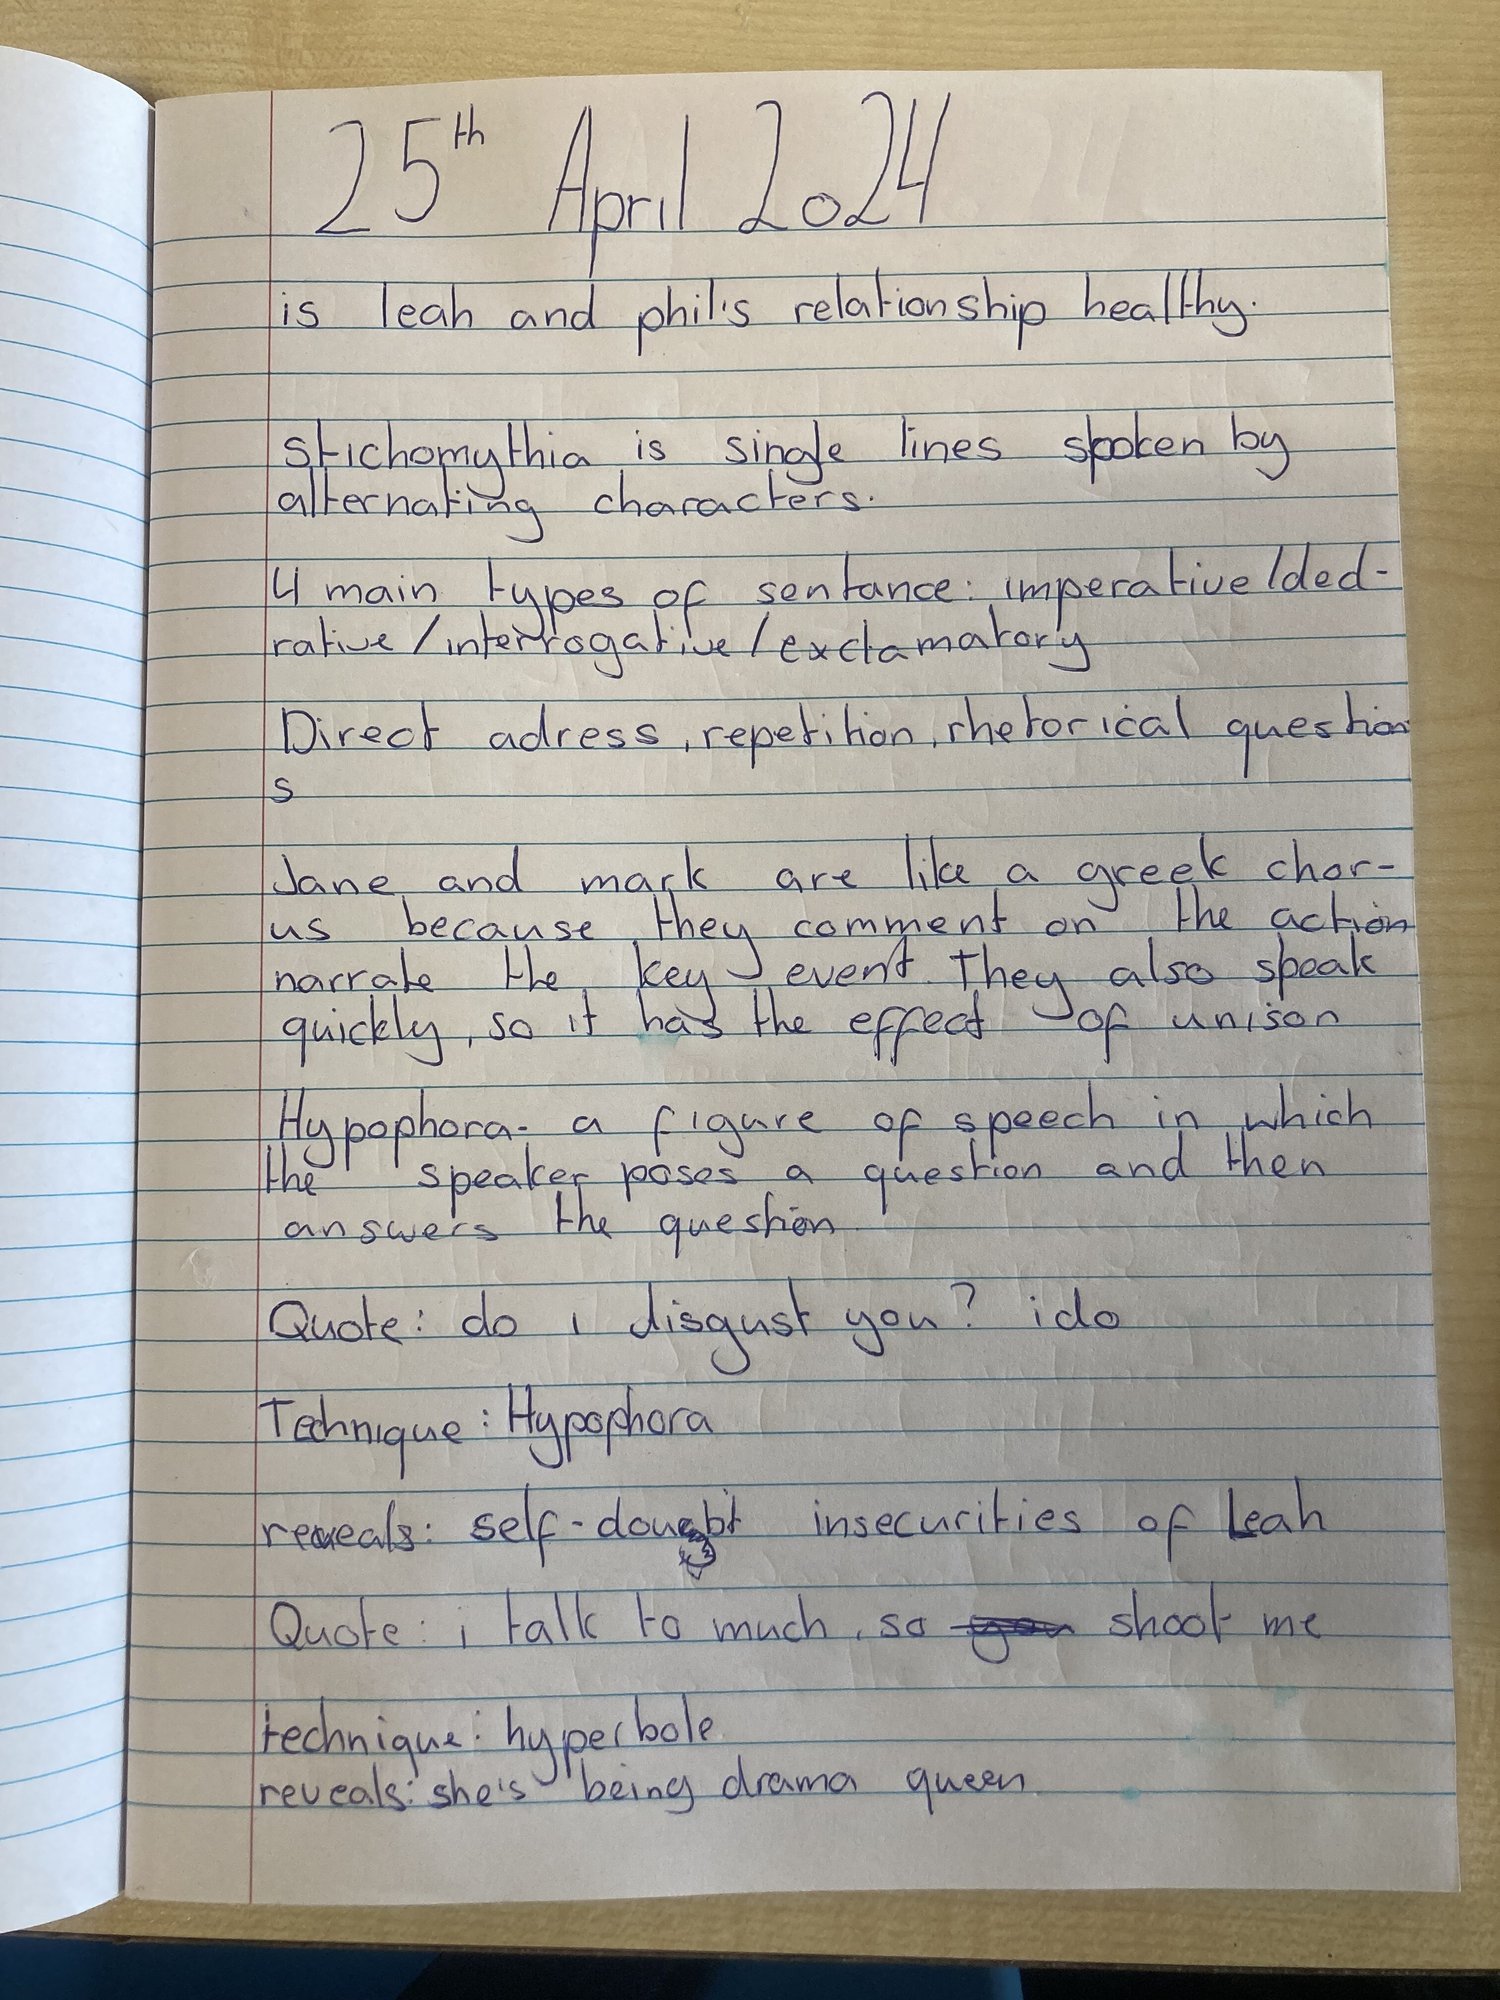 25th April 2024
is leah and phil's relationship healthy.
stichomythia is single lines spoken by
alternating characters.
4 main types of sentance: imperative/decl-
rative/interrogative/exclamatory
Direct adress, repetition, rhetorical question
s
Jane and mark are like a greek chor-
us because they comment on the action
narrate the key event. They also speak
quickly, so it has the effect of unison
Hypophora- a figure of speech in which
the speaker poses a question and then
answers the question
Quote: do i disgust you? i do
Technique: Hypophora
reveals: self-doubt insecurities of Leah
Quote: i talk to much, so shoot me
technique: hyperbole
reveals: she's being drama queen